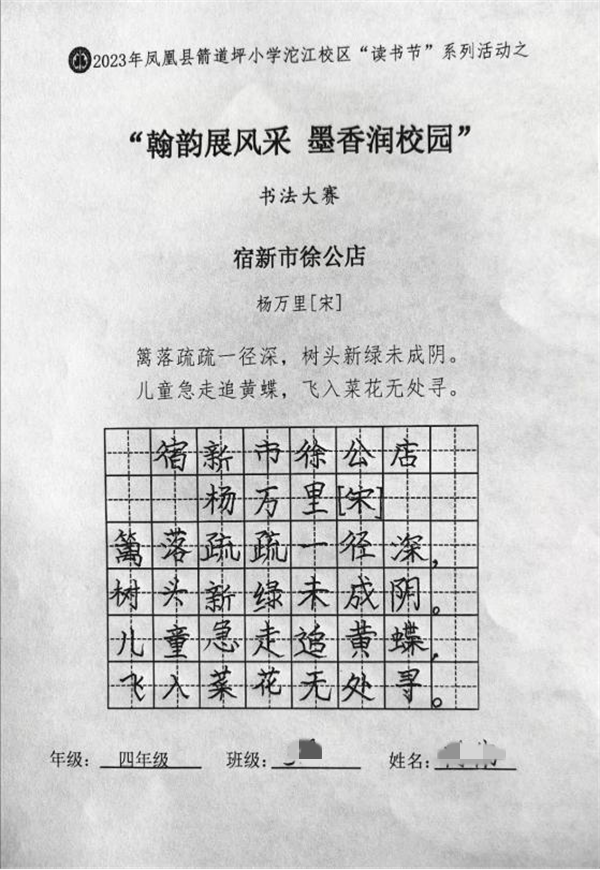 2023年凤凰县箭道坪小学沱江校区“读书节”系列活动之
“翰韵展风采 墨香润校园”
书法大赛
宿新市徐公店
杨万里[宋]
篱落疏疏一径深，树头新绿未成阴。
儿童急走追黄蝶，飞入菜花无处寻。
宿新市徐公店
杨万里[宋]
篱落疏疏一径深，
树头新绿未成阴。
儿童急走追黄蝶，
飞入菜花无处寻。
年级：四年级 班级： 姓名：